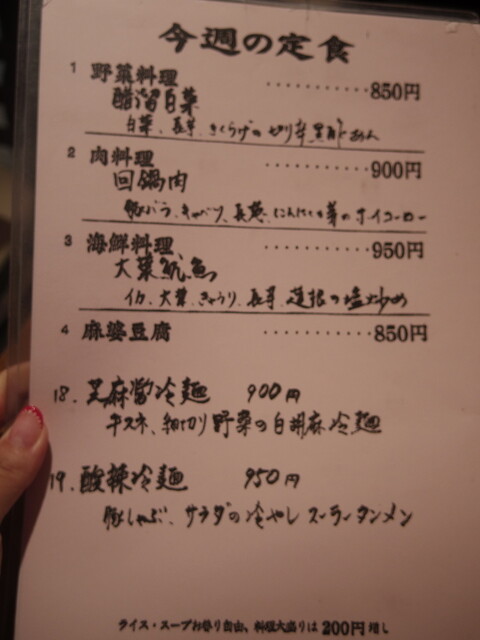 今週の定食
1 野菜料理 ··········· 850円
醋溜白菜
白菜、長芋、きくらげのピリ辛黒酢あん
2 肉料理 ··········· 900円
回鍋肉
豚バラ、キャベツ、長葱、にんにくの芽のホイコーロー
3 海鮮料理 ··········· 950円
大葉魷魚
イカ、大葉、きゅうり、長芋、蓮根の塩炒め
4 麻婆豆腐 ··········· 850円
18. 芝麻醤冷麺 900円
牛スネ、細切り野菜の白胡麻冷麺
19. 酸辣冷麺 950円
豚しゃぶ、サラダの冷やしスーラータンメン
ライス・スープお替り自由、料理大盛りは200円増し